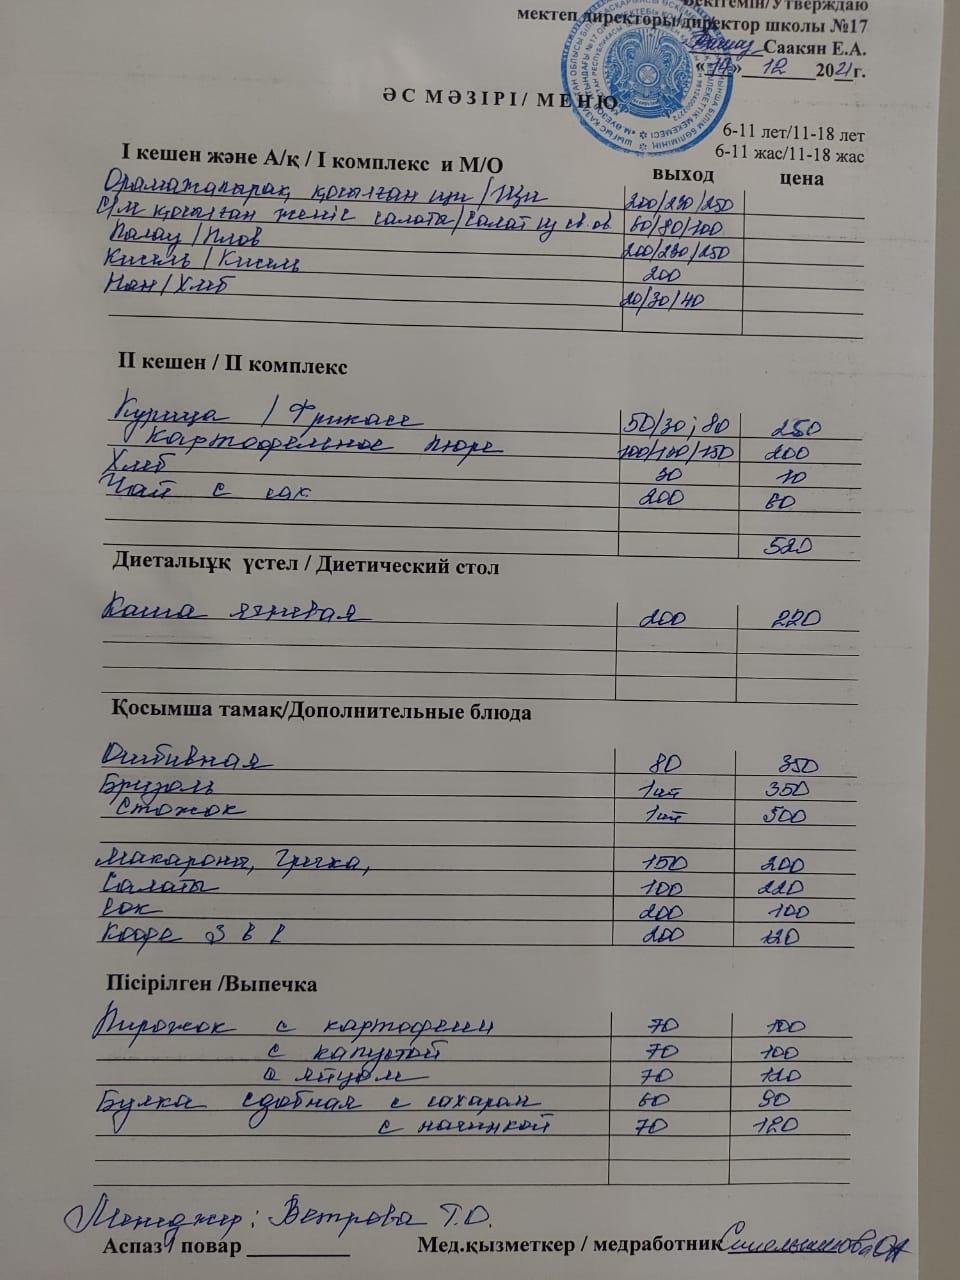 Бекітемін/Утверждаю
мектеп директоры/директор школы №17
Саакян Е.А.
«14» 12 2021г.
ӘС МӘЗІРІ/ МЕНЮ
6-11 лет/11-18 лет
6-11 жас/11-18 жас
І кешен және А/қ / І комплекс и М/О выход цена
Орамжапырақ қосылған щи / Щи 200/230/250
С/м қосылған жеміс салаты/Салат из св. ов. 60/80/100
Палау / Плов 200/230/250
Кисель / Кисель 200
Нан / Хлеб 20/30/40
ІІ кешен / ІІ комплекс
Курица / Фрикасе 50/30; 80 250
Картофельное пюре 100/130/150 200
Хлеб 30 10
Чай с сах 200 60
520
Диеталыұқ үстел / Диетический стол
Каша ячневая 200 220
Қосымша тамақ/Дополнительные блюда
Отбивная 80 350
Бризоль 1шт 350
Стожок 1шт 500
Макароны, Гречка, 150 200
Салаты 100 220
Сок 200 100
Кофе 3 в 1 200 120
Пісірілген /Выпечка
Пирожок с картофелем 70 100
с капустой 70 100
с яйцом 70 120
Булка сдобная с сахаром 60 90
с начинкой 70 120
Менеджер: Ветрова Т.О.
Аспаз / повар Мед.қызметкер / медработник